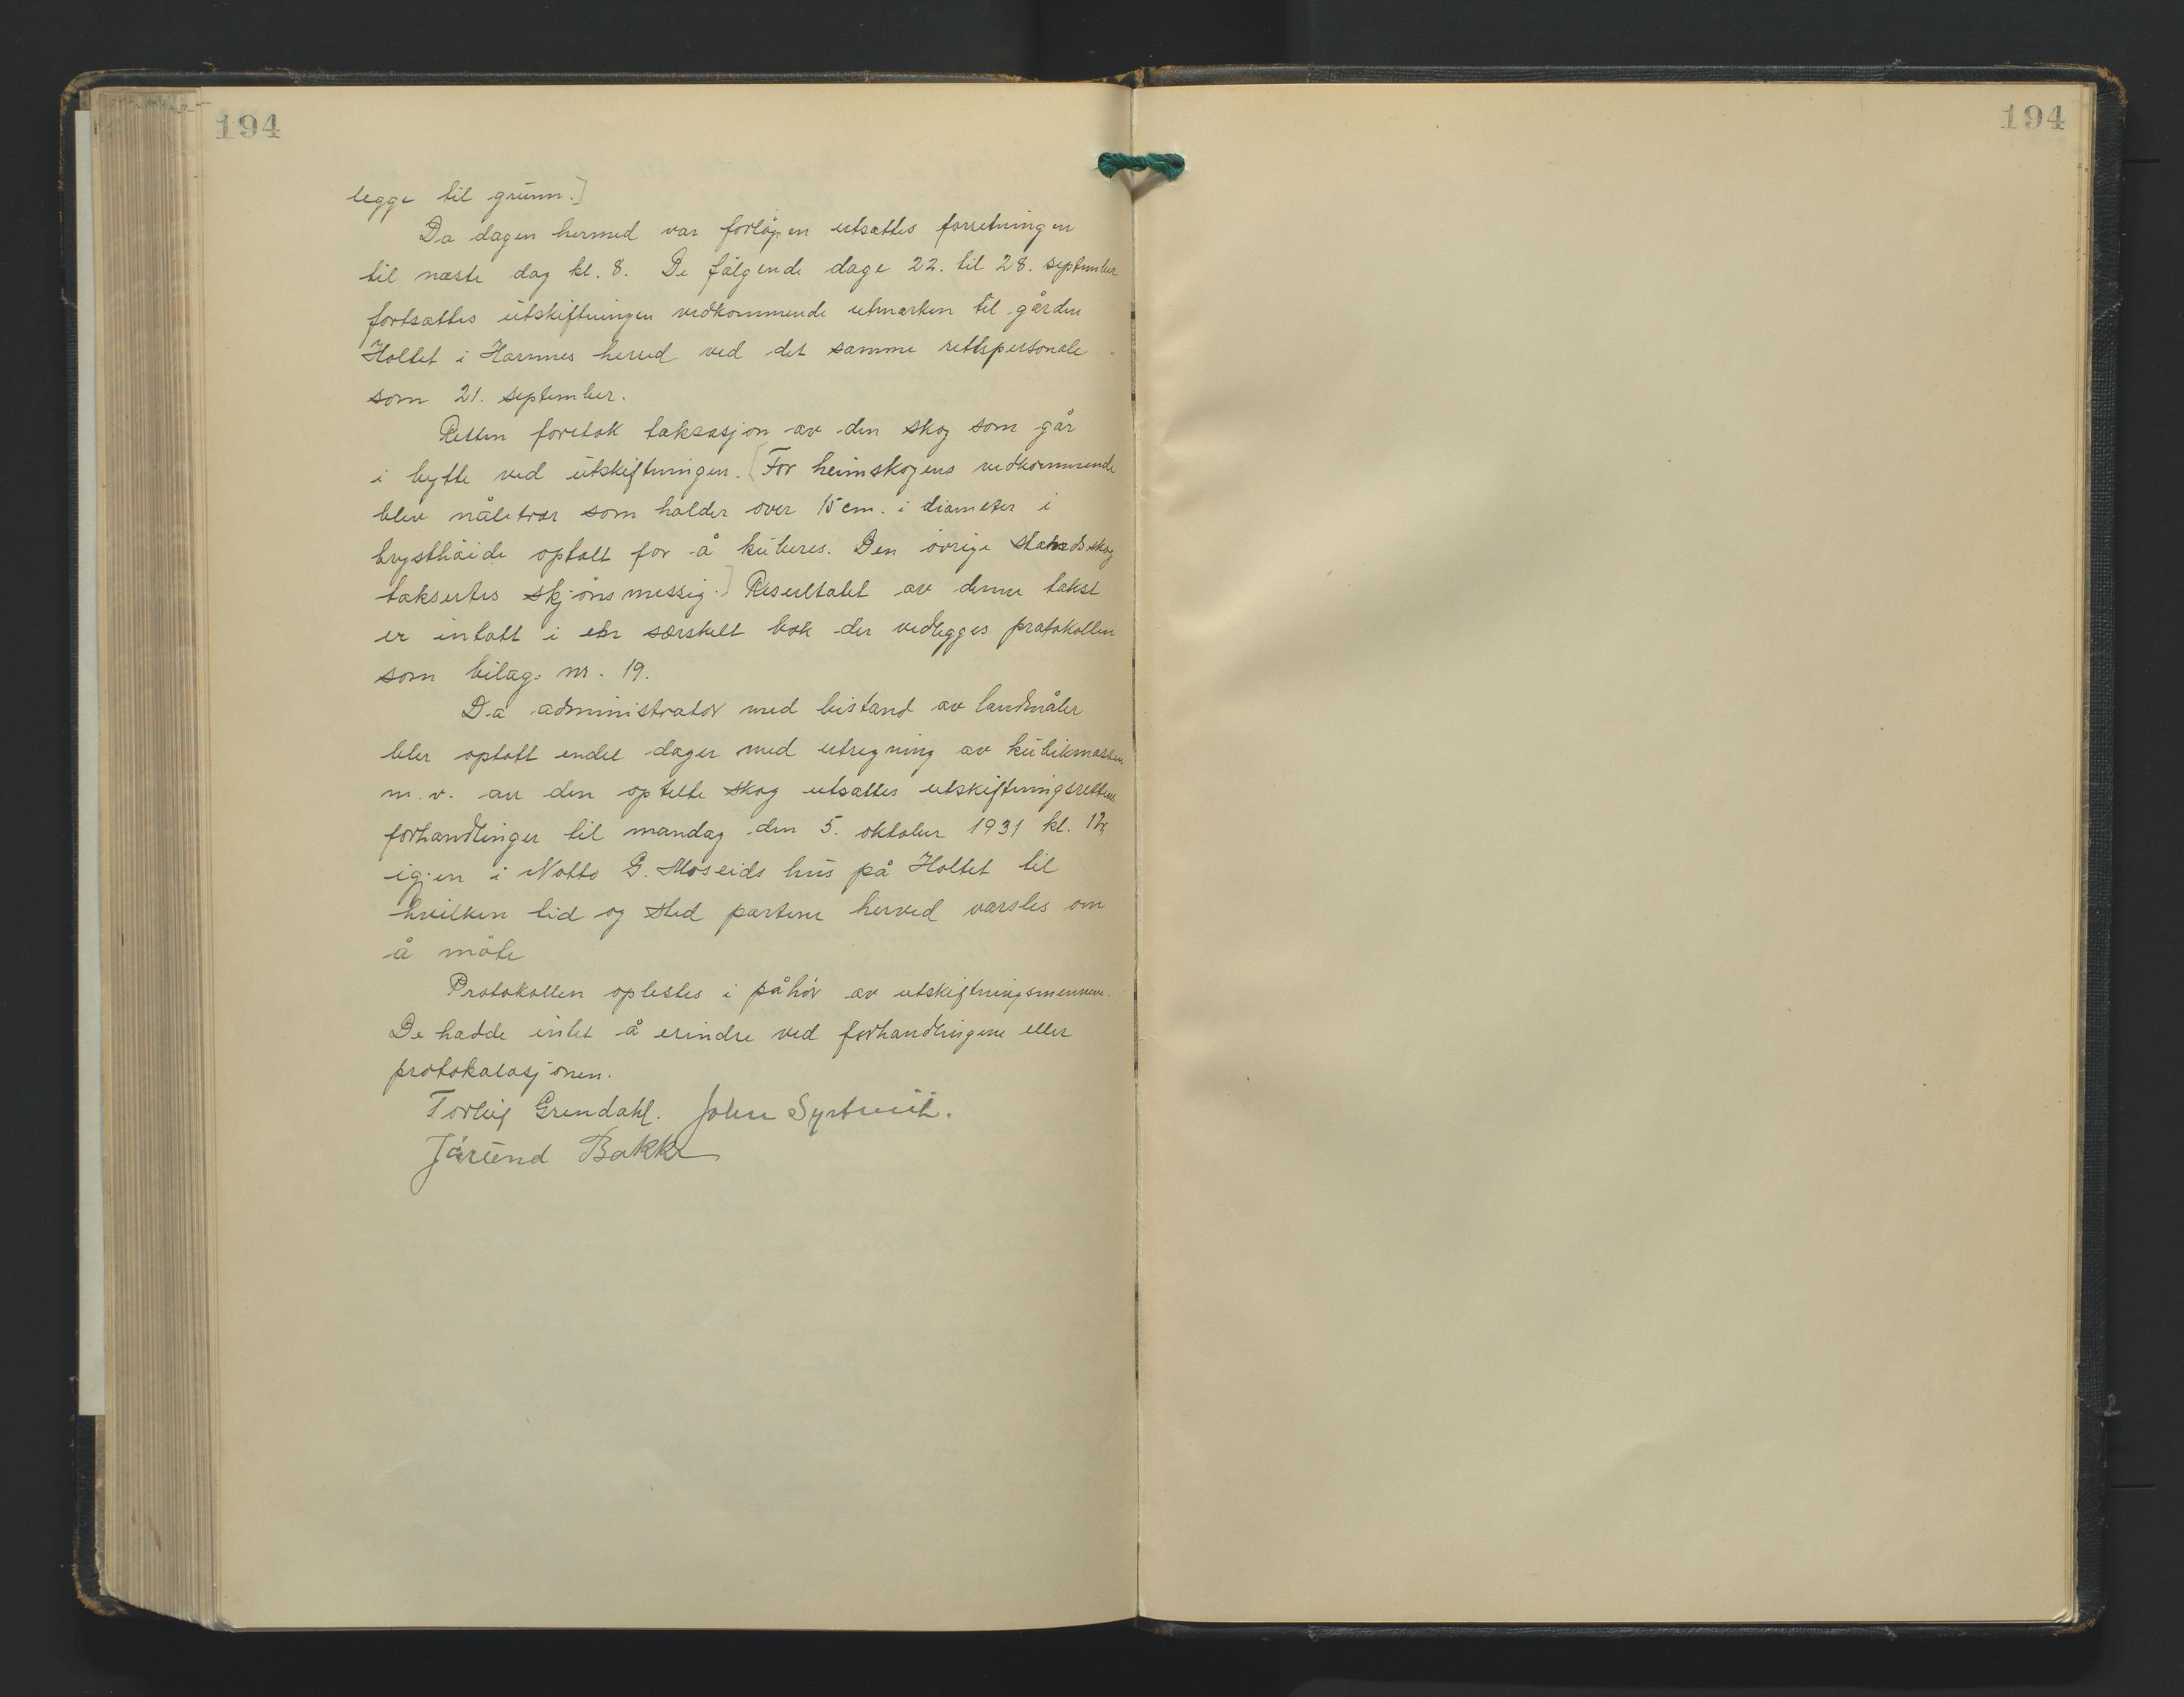 194
194
legge til grunn.]
Da dagen hermed var forløpen utsattes forretningen
til næste dag kl. 8. De følgende dage 22. til 28. september
fortsattes utskiftningen vedkommende utmarken til gården
Holtet i Hornnes herred ved det samme rettspersonale
som 21. september.
Retten foretok taksasjon av den skog som går
i bytte ved utskiftningen. [For heimskogens vedkommende
blev nåletrær som holder over 15 cm. i diameter i
brysthöide optalt for å kuberes. Den övrige skog
taksertes skjönsmessig.] Resultatet av denne takst
er intatt i en særskelt bok der vedlegges protokollen
som bilag nr. 19.
Da administrator med bistand av landmåler
blir optatt endel dager med utregning av kubikmassen
m.v. av den optelte skog utsattes utskiftningsrettens
forhandlinger til mandag den 5. oktober 1931 kl. 12
igjen i Notto G. Moseids hus på Holtet til
hvilken tid og sted partene herved varsles om
å möte
Protokollen oplestes i påhör av utskiftningsmennene.
De hadde intet å erindre ved forhandlingene eller
protokolasjonen.
Torleif Grendahl. John
Jörund Bakke